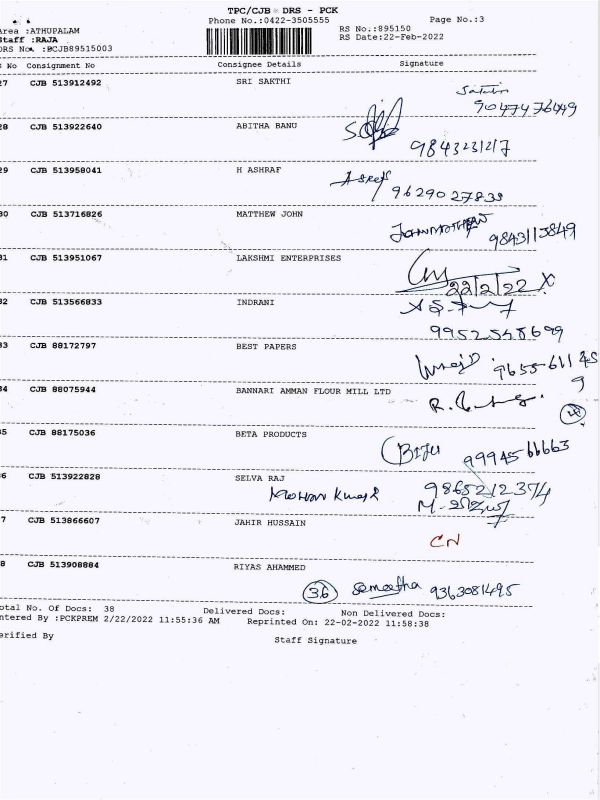 TPC/CJB DRS - PCK
Phone No.:0422-3505555
Page No.:3
Area :ATHUPALAM
RS No.:895150
Staff :RAJA
RS Date:22-Feb-2022
DRS No. :BCJB89515003
No Consignment No Consignee Details Signature
27 CJB 513912492 SRI SAKTHI
9047476449
28 CJB 513922640 ABITHA BANU
9843231217
29 CJB 513958041 H ASHRAF
9629027839
30 CJB 513716826 MATTHEW JOHN
9843113849
31 CJB 513951067 LAKSHMI ENTERPRISES
22/2/22 X
32 CJB 513566833 INDRANI
9952548699
33 CJB 88172797 BEST PAPERS
34 CJB 88075944 BANNARI AMMAN FLOUR MILL LTD
35 CJB 88175036 BETA PRODUCTS
BIJU 9994566663
36 CJB 513922828 SELVA RAJ
Mohan Kumar 9865212374
37 CJB 513866607 JAHIR HUSSAIN
CN
38 CJB 513908884 RIYAS AHAMMED
36 9363081495
Total No. Of Docs: 38 Delivered Docs: Non Delivered Docs:
Entered By :PCKPREM 2/22/2022 11:55:36 AM Reprinted On: 22-02-2022 11:58:38
Verified By Staff Signature